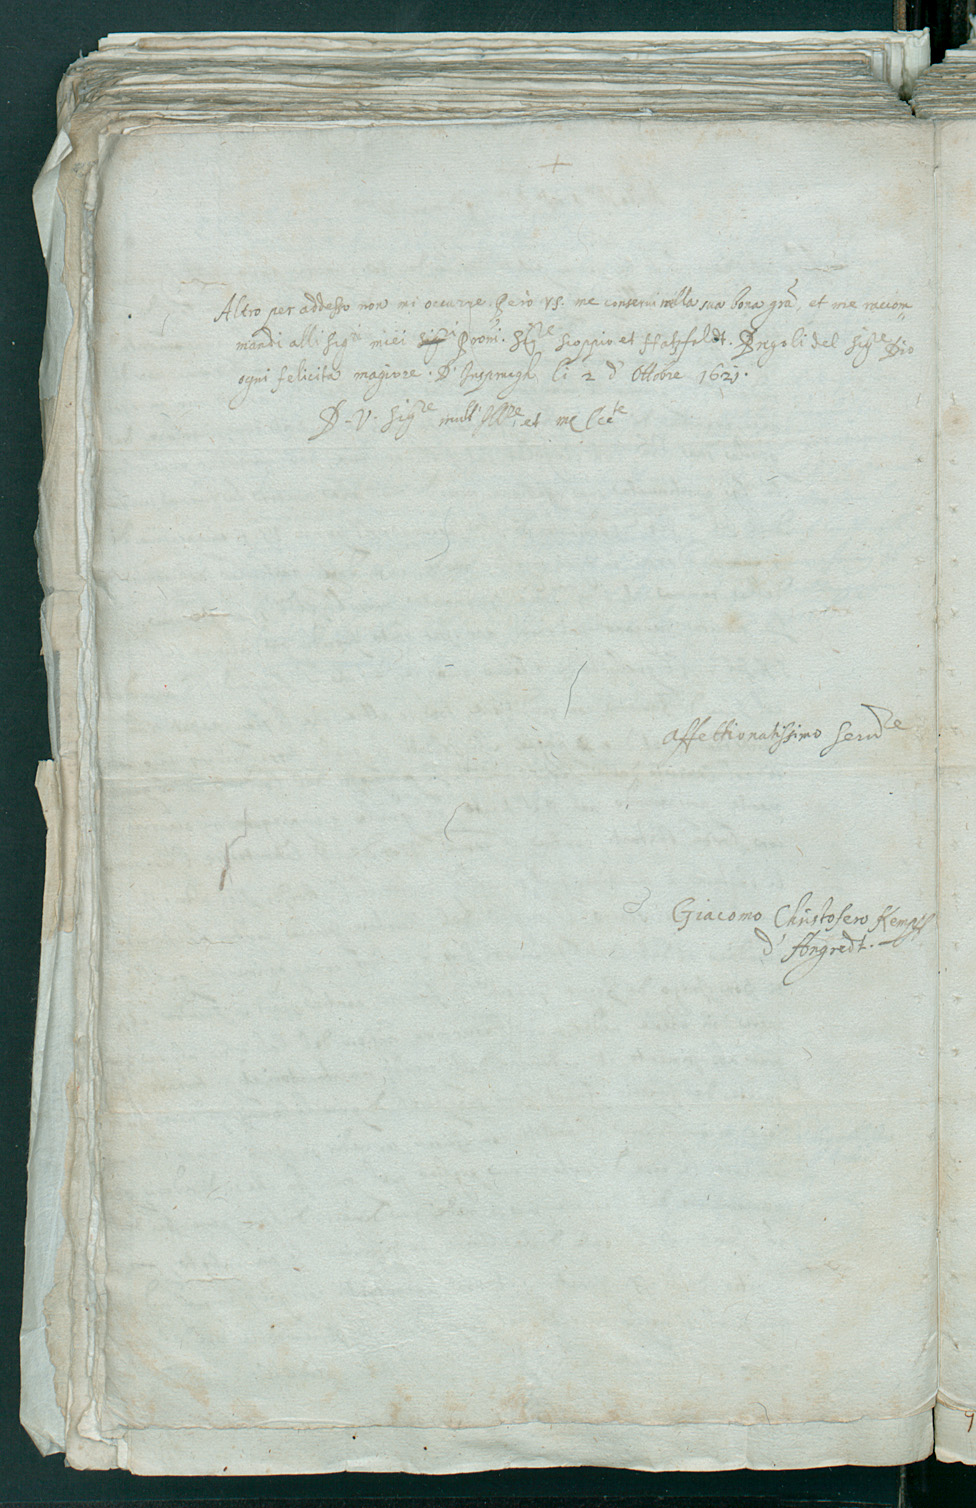 +
Altro per addesso non mi occurre. Però vs. me conserui nella sua bona gra, et me racom-
mandi alli sigri miei Proni. Sigre Scoppio et Hatzfeldt. Pregoli del sigre Dio
ogni felicità magiore. D' Inspruegh li 2 d' Ottobre 1621.
D. V. Sigre molt' Illre et
affettionatissimo serure
Giacomo Christofero Kempff
d' Angredt.